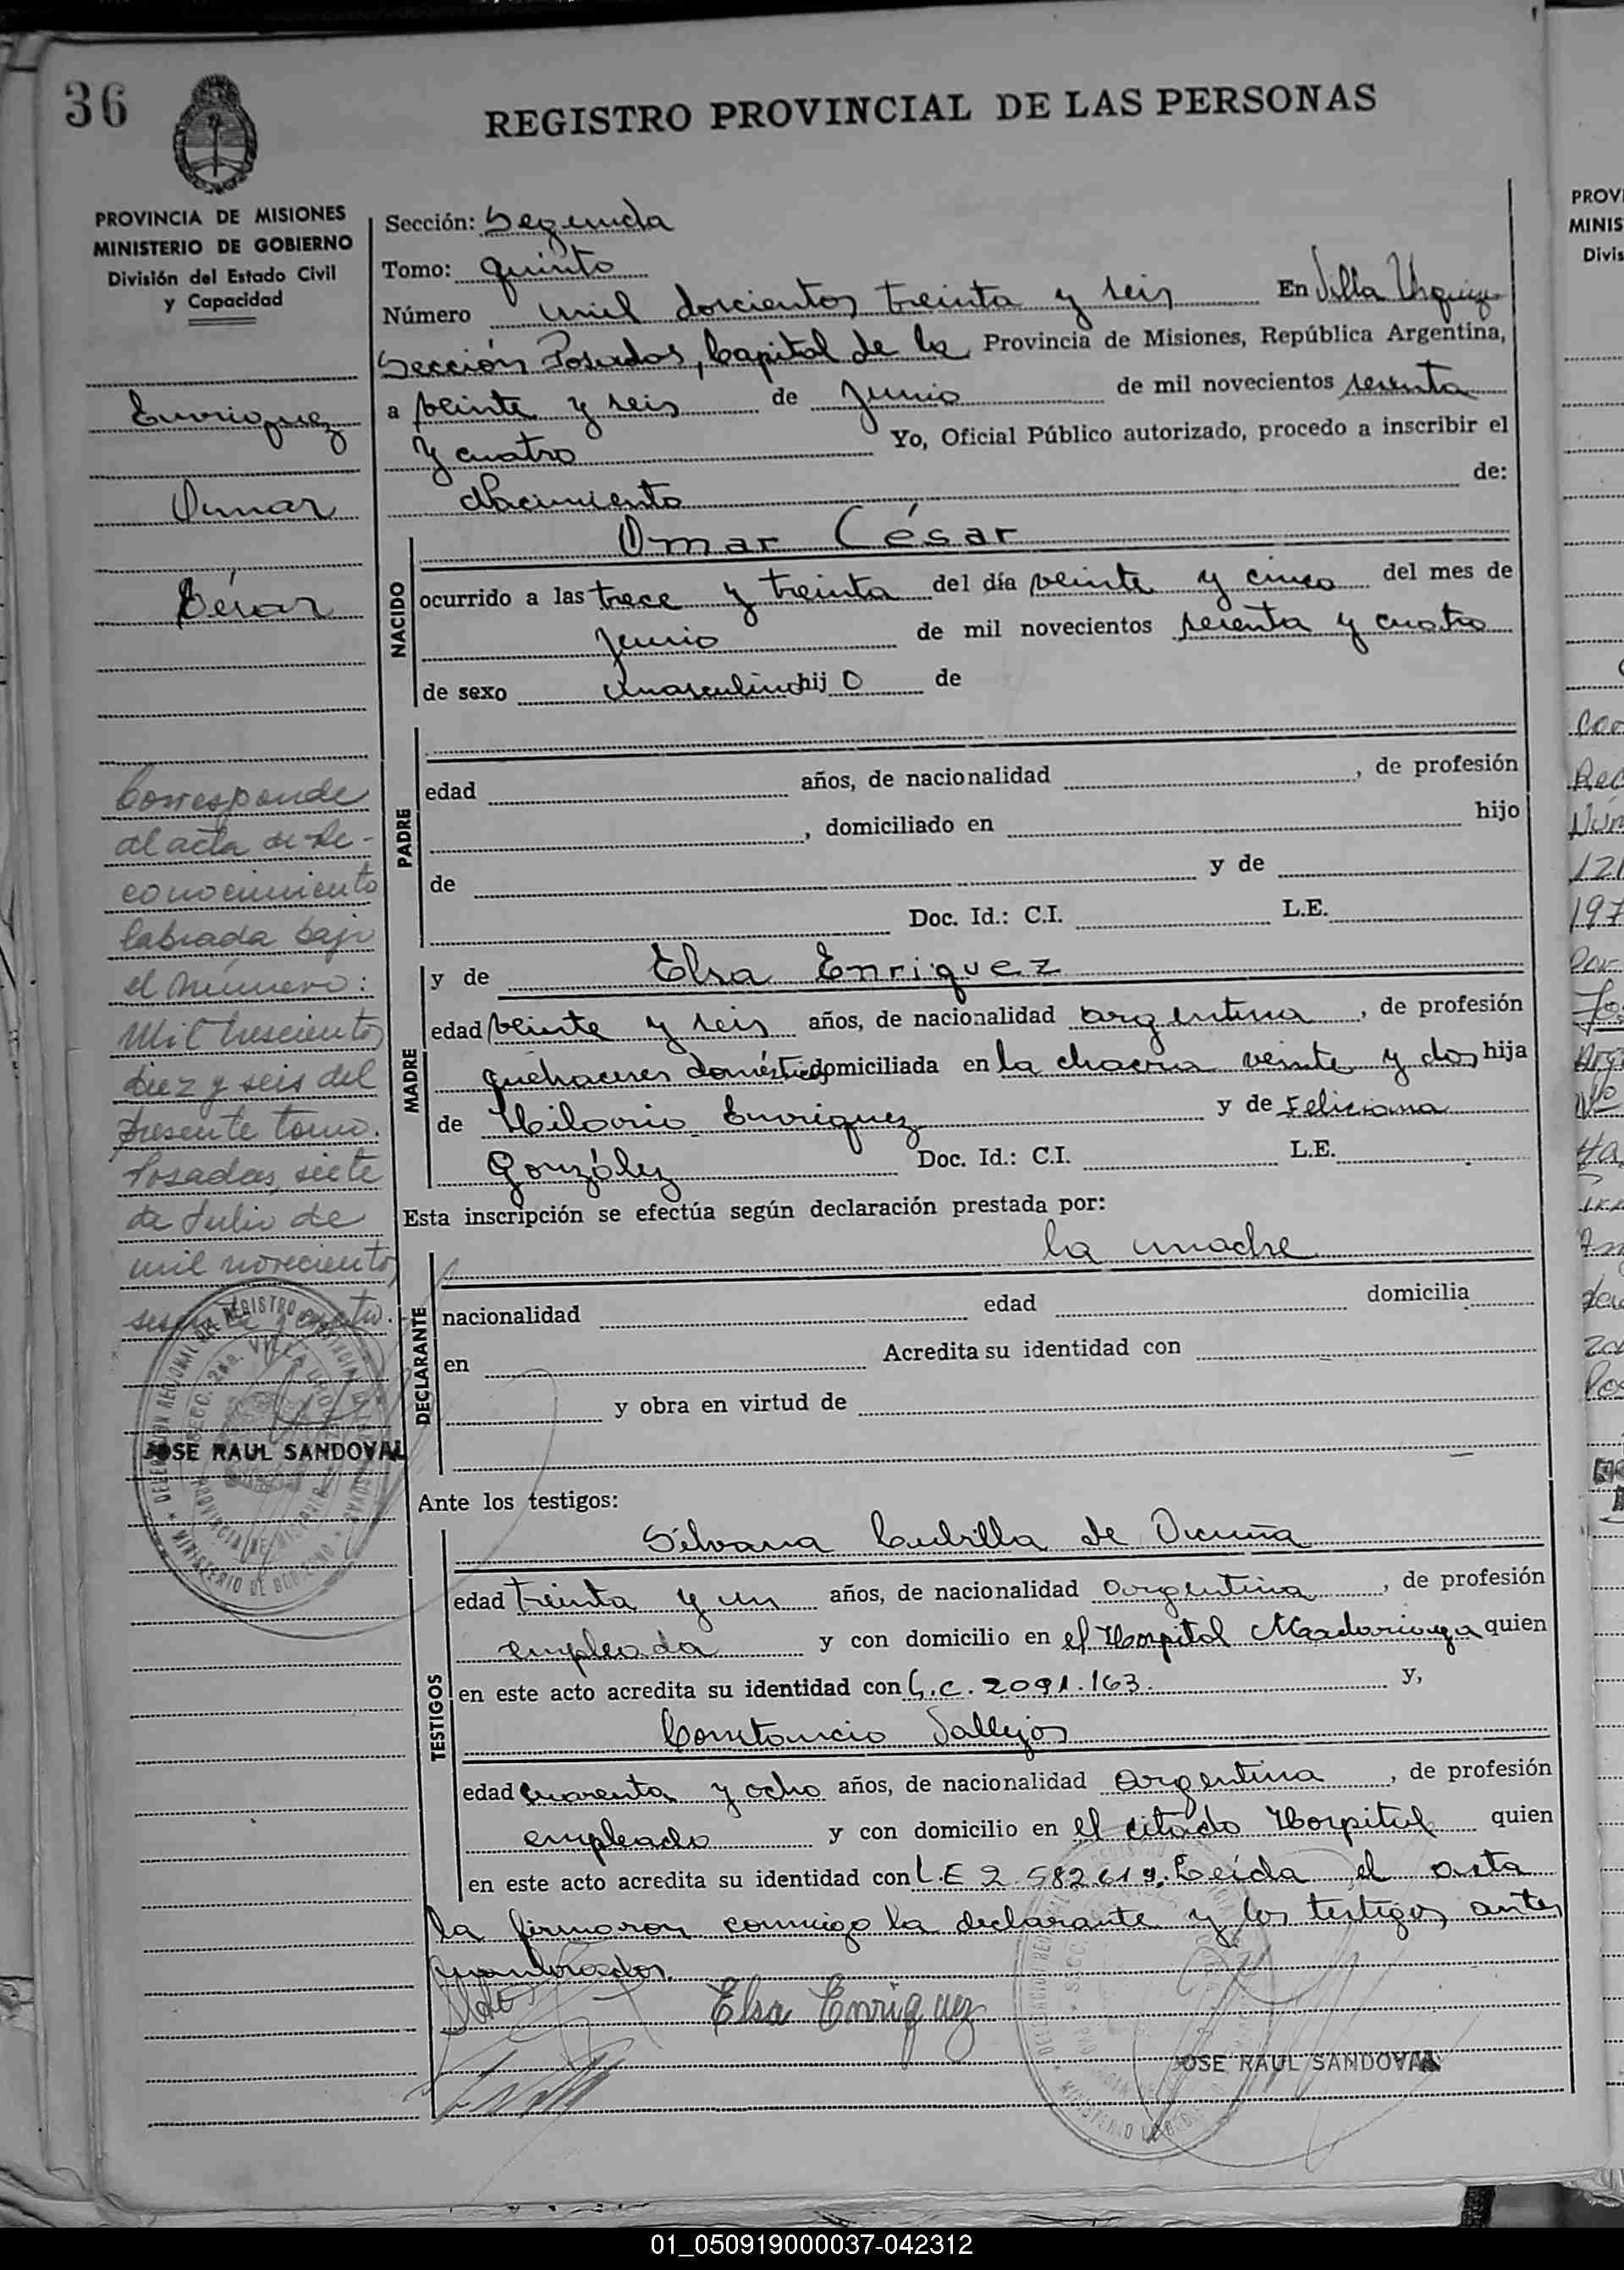 36
REGISTRO PROVINCIAL DE LAS PERSONAS
PROVINCIA DE MISIONES
MINISTERIO DE GOBIERNO
División del Estado Civil
y Capacidad
Enrriquez
Omar
César
Corresponde
al acta de Re-
conocimiento
labrada bajo
el número:
Mil trescientos
diez y seis del
presente tomo.
Posadas, siete
de Julio de
mil novecientos
sesenta y cuatro.
JOSE RAUL SANDOVAL
Sección: Segunda
Tomo: quinto
Número mil doscientos treinta y seis En Villa Urquiza
Sección Posadas, Capital de la Provincia de Misiones, República Argentina,
a veinte y seis de Junio de mil novecientos sesenta
y cuatro Yo, Oficial Público autorizado, procedo a inscribir el
Nacimiento de:
NACIDO
Omar César
ocurrido a las trece y treinta del día veinte y cinco del mes de
Junio de mil novecientos sesenta y cuatro
de sexo masculino hijo de
PADRE
edad años, de nacionalidad , de profesión
, domiciliado en hijo
de y de
Doc. Id.: C.I. L.E.
MADRE
y de Elsa Enriquez
edad veinte y seis años, de nacionalidad argentina, de profesión
quehaceres domésticos domiciliada en la chacra veinte y dos hija
de Hilario Enrriquez y de Feliciana
González Doc. Id.: C.I. L.E.
Esta inscripción se efectúa según declaración prestada por:
DECLARANTE
la madre
nacionalidad edad domicilia
en Acredita su identidad con
y obra en virtud de
Ante los testigos:
TESTIGOS
Silvana de
edad treinta y un años, de nacionalidad argentina, de profesión
empleada y con domicilio en el Hospital Madariaga quien
en este acto acredita su identidad con L.C. 2091.163. y,
Constancio Vallejos
edad cuarenta y ocho años, de nacionalidad argentina, de profesión
empleado y con domicilio en el citado Hospital quien
en este acto acredita su identidad con L.E 2.582.619. Leída el acta
la firmaron conmigo la declarante y los testigos antes
nombrados.
Elsa Enriquez
JOSE RAUL SANDOVAL
01_050919000037-042312